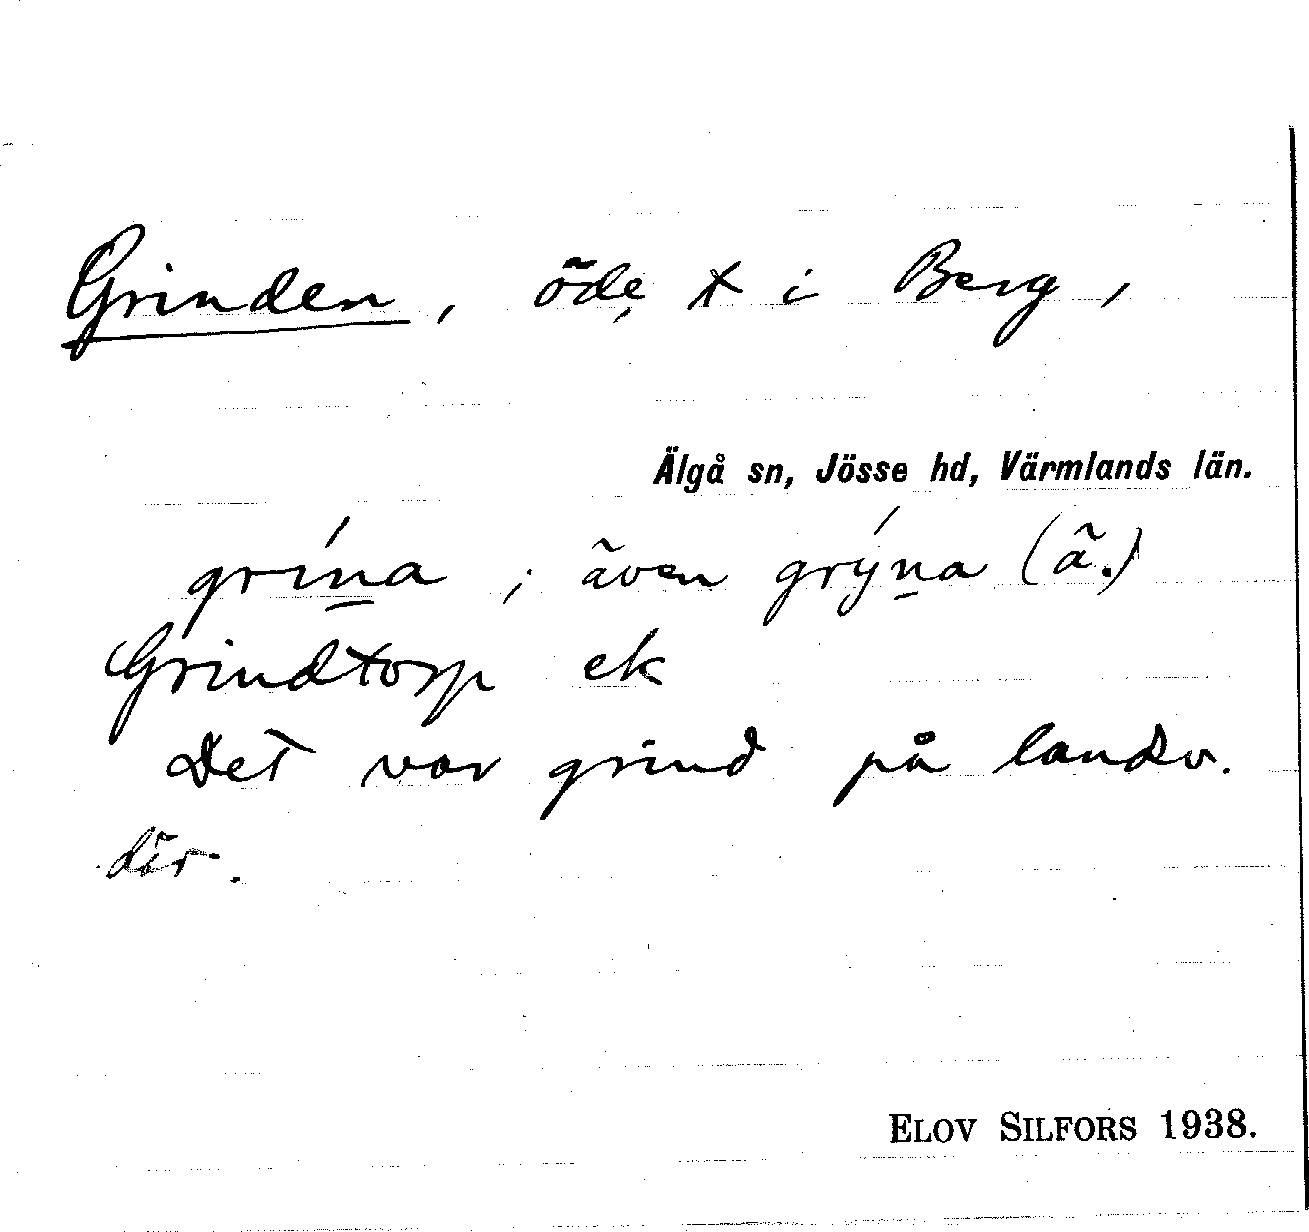 Grinden, öde, t i Berg,
Älgå sn, Jösse hd, Värmlands län.
grína ; även grýna (ä.)
Grindtorp ek
Det var grind på landv.
där.
ELOV SILFORS 1938.